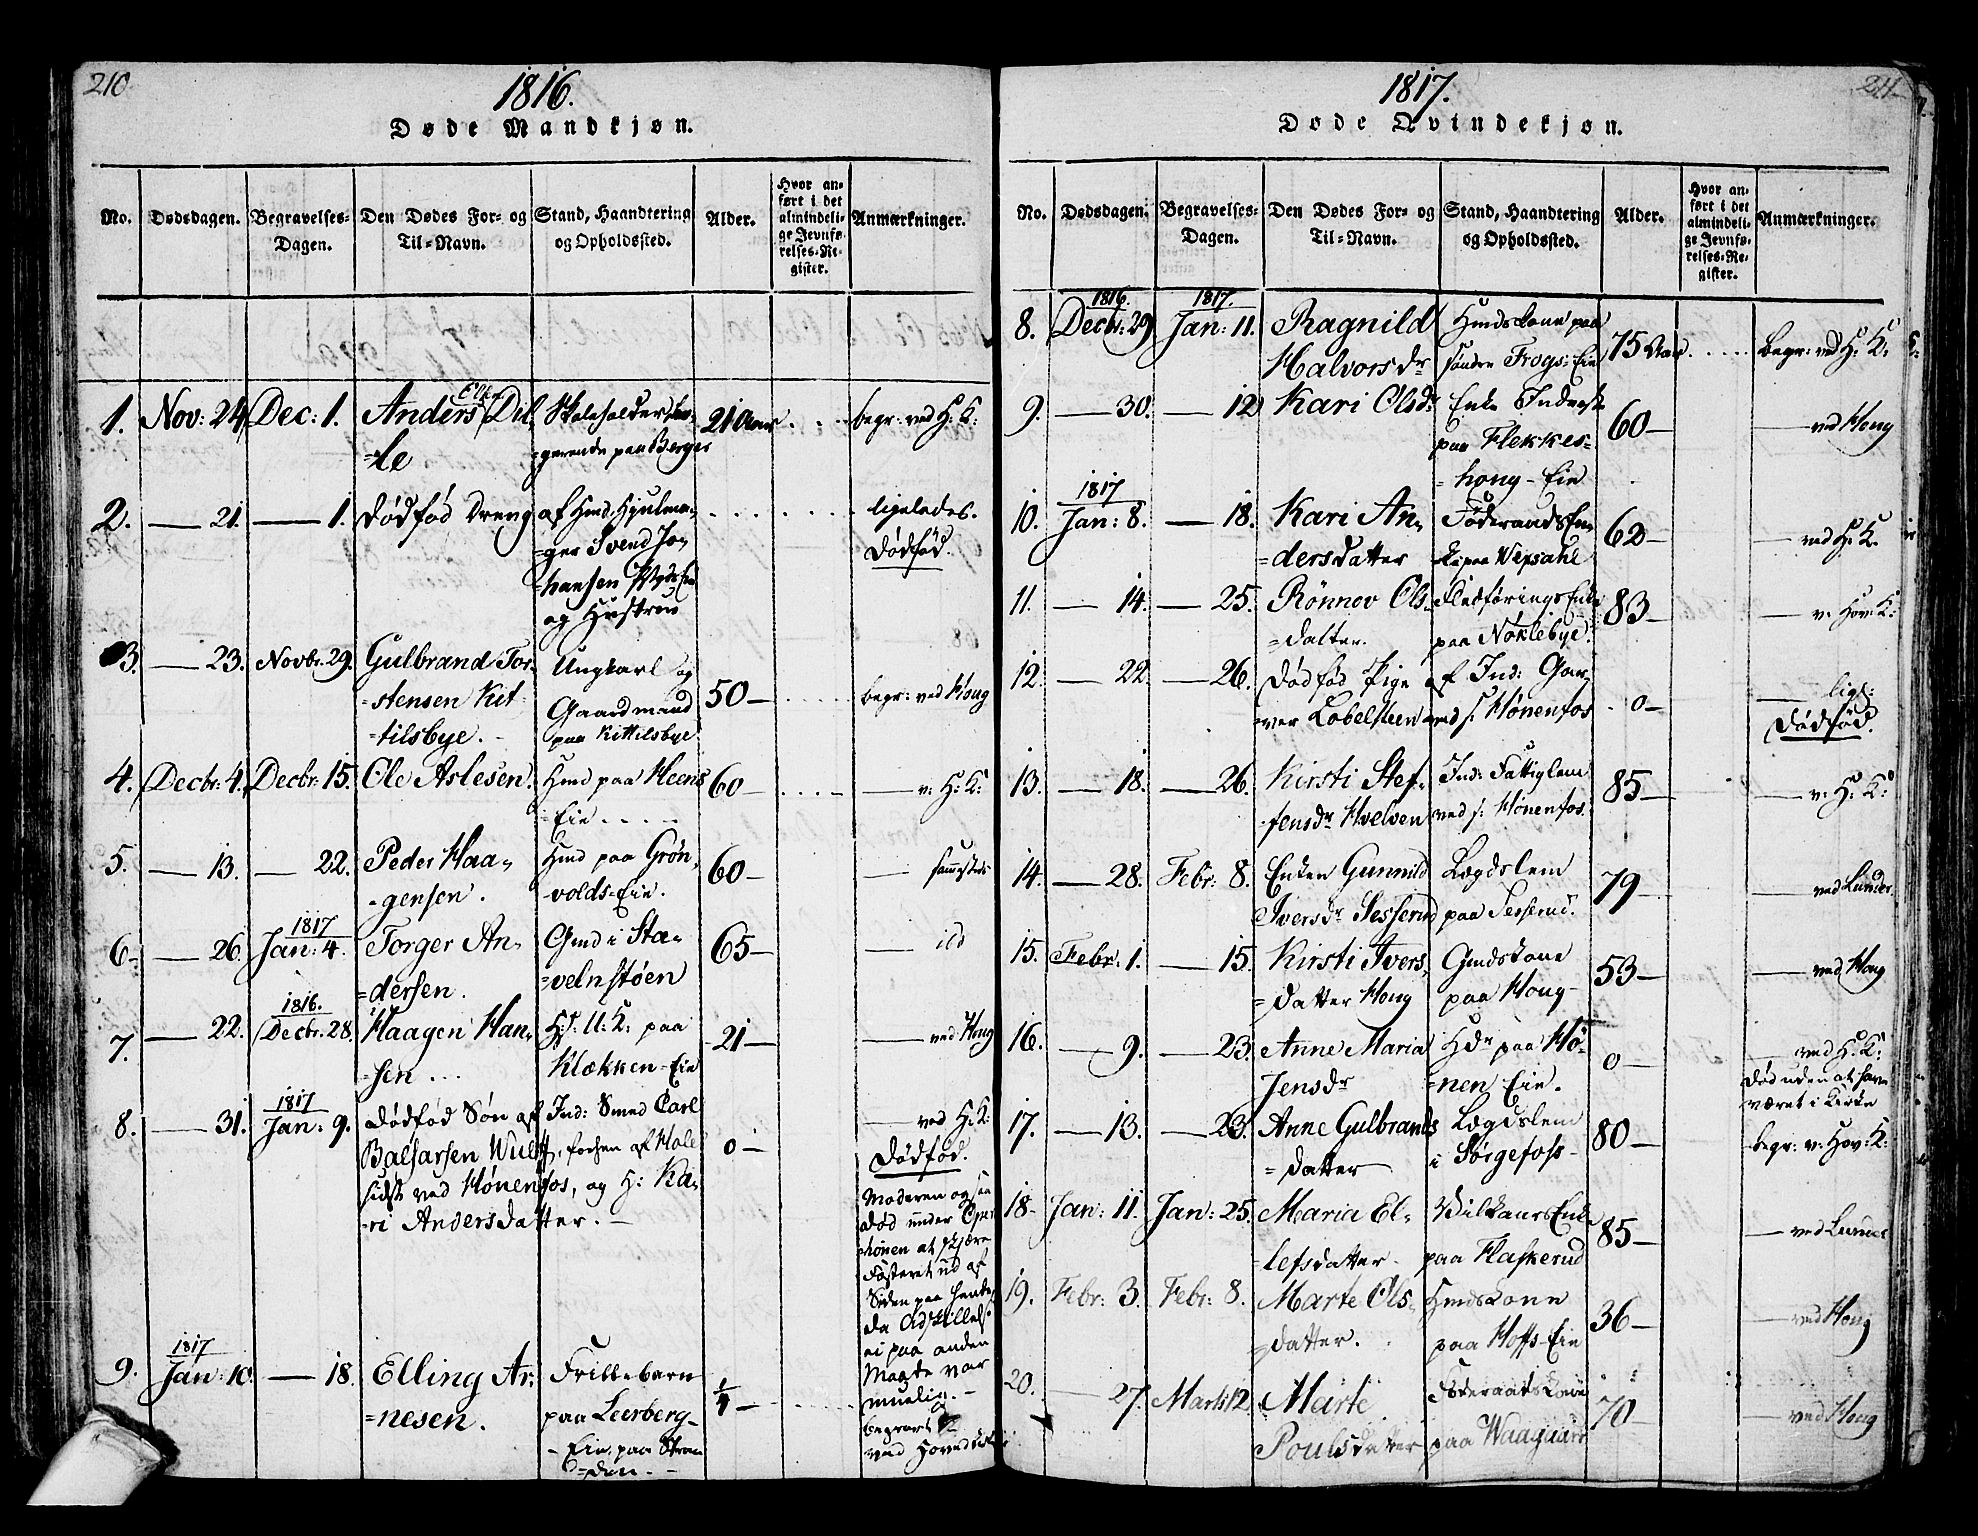 210.
1816.
Døde Mandkjøn.
No.
Dødsdagen.
Begravelses-
Dagen.
Den Dødes For- og
Til-Navn.
Stand, Haandtering
og Opholdssted.
Alder.
Hvor an-
ført i det
almindeli-
ge Jevnfø-
relses-Re-
gister.
Anmærkninger.
1. Nov: 24 Dec: 1. Anders Dil
=le
Skoleholder
=gerende paa Berger
21 Aar
begr: ved H: K:
2. — 21. — 1. Dødfød Dreng
af Hmd. Hjulma-
=ger Svend Jo-
=hansen
og Hustrue
ligeledes.
Dødfød.
3. — 23. Novbr: 29. Gulbrand Tor-
=stensen Kit-
=tilsbye.
Ungkarl og
Gaardmand
paa Kittilsbye
50 —
begr: ved Houg
4. Decbr: 4. Decbr: 15. Ole Aslesen
Hmd paa Heens
Eie
60 —
— v: H: K:
5. — 13. — 22. Peder Haa-
=gensen.
Hmd paa Grøn-
volds-Eie.
60 —
— sammesteds
6. — 26. 1817 Jan: 4. Torger An-
=dersen.
Gmd i Sta-
=velnstøen
65 —
— ibd
7. — 22. 1816. Decbr: 28. Haagen Han-
=sen
H: S: U: K: paa
Klækken-Eie
21 —
— ved Houg
8. — 31. 1817 Jan: 9. Dødfød Søn af Ind: Smed Carl
Balsarsen Wulff, forhen af Hole
sidst ved Hønenfos, og H: Ka-
=ri Andersdatter. —
0 —
— ved H: K:
Dødfød.
Moderen ogsaa
død under Oper
=tionen at skjære
Fosteret ud af
Siden paa hende
da Adskillelse
ei paa anden
Maade var
muelig. —
begravet
ved Hovedkirk
9. 1817 Jan: 10. — 18. Elling Ar-
=nesen.
Frillebarn
paa Leerberg-
Eie, paa Stran
=den. —
¼ —
211
1817.
Døde Qvindekjøn.
No.
Dødsdagen.
Begravelses-
Dagen.
Den Dødes For- og
Til-Navn.
Stand, Haandtering
og Opholdssted.
Alder.
Hvor an-
ført i det
almindeli-
ge Jevnfø-
relses-Re-
gister.
Anmærkninger.
8. 1816. Decbr: 29. 1817. Jan: 11. Ragnild
Halvorsdr
Hmdskone paa
søndre Frogs-Eie
75 Aar
begr: ved H: K:
9. — 30. — 12 Kari Olsdr
Enke Inderste
paa Flekkes-
=houg-Eie
60 —
— ved Houg
10. 1817 Jan: 8. — 18. Kari An-
=dersdatter
Føderaads En-
ke paa Vepsahl
62 —
— ved H: K.
11. — 14. — 25. Rønnov Ols-
=datter.
Fledførings Enke
paa Nøklebye.
83 —
— v: Hov: K:
12. — 22. — 26. Dødfød Pige af Ind: Gar-
ver Lobelsteen ved s: Hønenfos
0 —
— lige:
Dødfød.
13. — 18. — 26. Kirsti Stef-
=fensdr Hvelven
Ind: Fattiglem
ved s: Hønenfos.
85 —
— v: H: K:
14. — 28. Febr: 8. Enken Gunnild
Iversdr Sesserud
Lægdslem
paa Sesserud.
79 —
— ved Lunder
15. Febr: 1. — 15. Kirsti Ivers-
=datter Houg
Gmdskone
paa Houg-
53 —
— ved Houg
16. — 9. — 23. Anne Maria
Jensdr
Hdr paa Hø-
=nen Eie.
0 —
— ved H: K:
død uden at have
været i Kirke
17. — 13. — 23. Anne Gulbrands
=datter
Lægdslem
i Sørgefoss-
80 —
begr: v: Hov: K:
18. Jan: 11. Jan: 25. Maria El-
=lefsdatter
Vilkaars Enke
paa Flaskerud
85 —
— ved Lunder
19. Febr: 3. Febr: 8. Marte Ols-
=datter.
Hmdskone
paa Hoffs-Eie
36 —
— ved Houg
20. — 27. Marts 12. Marte
Poulsdatter
Føderaadskone
paa Waagaard
70 —
— ved Houg